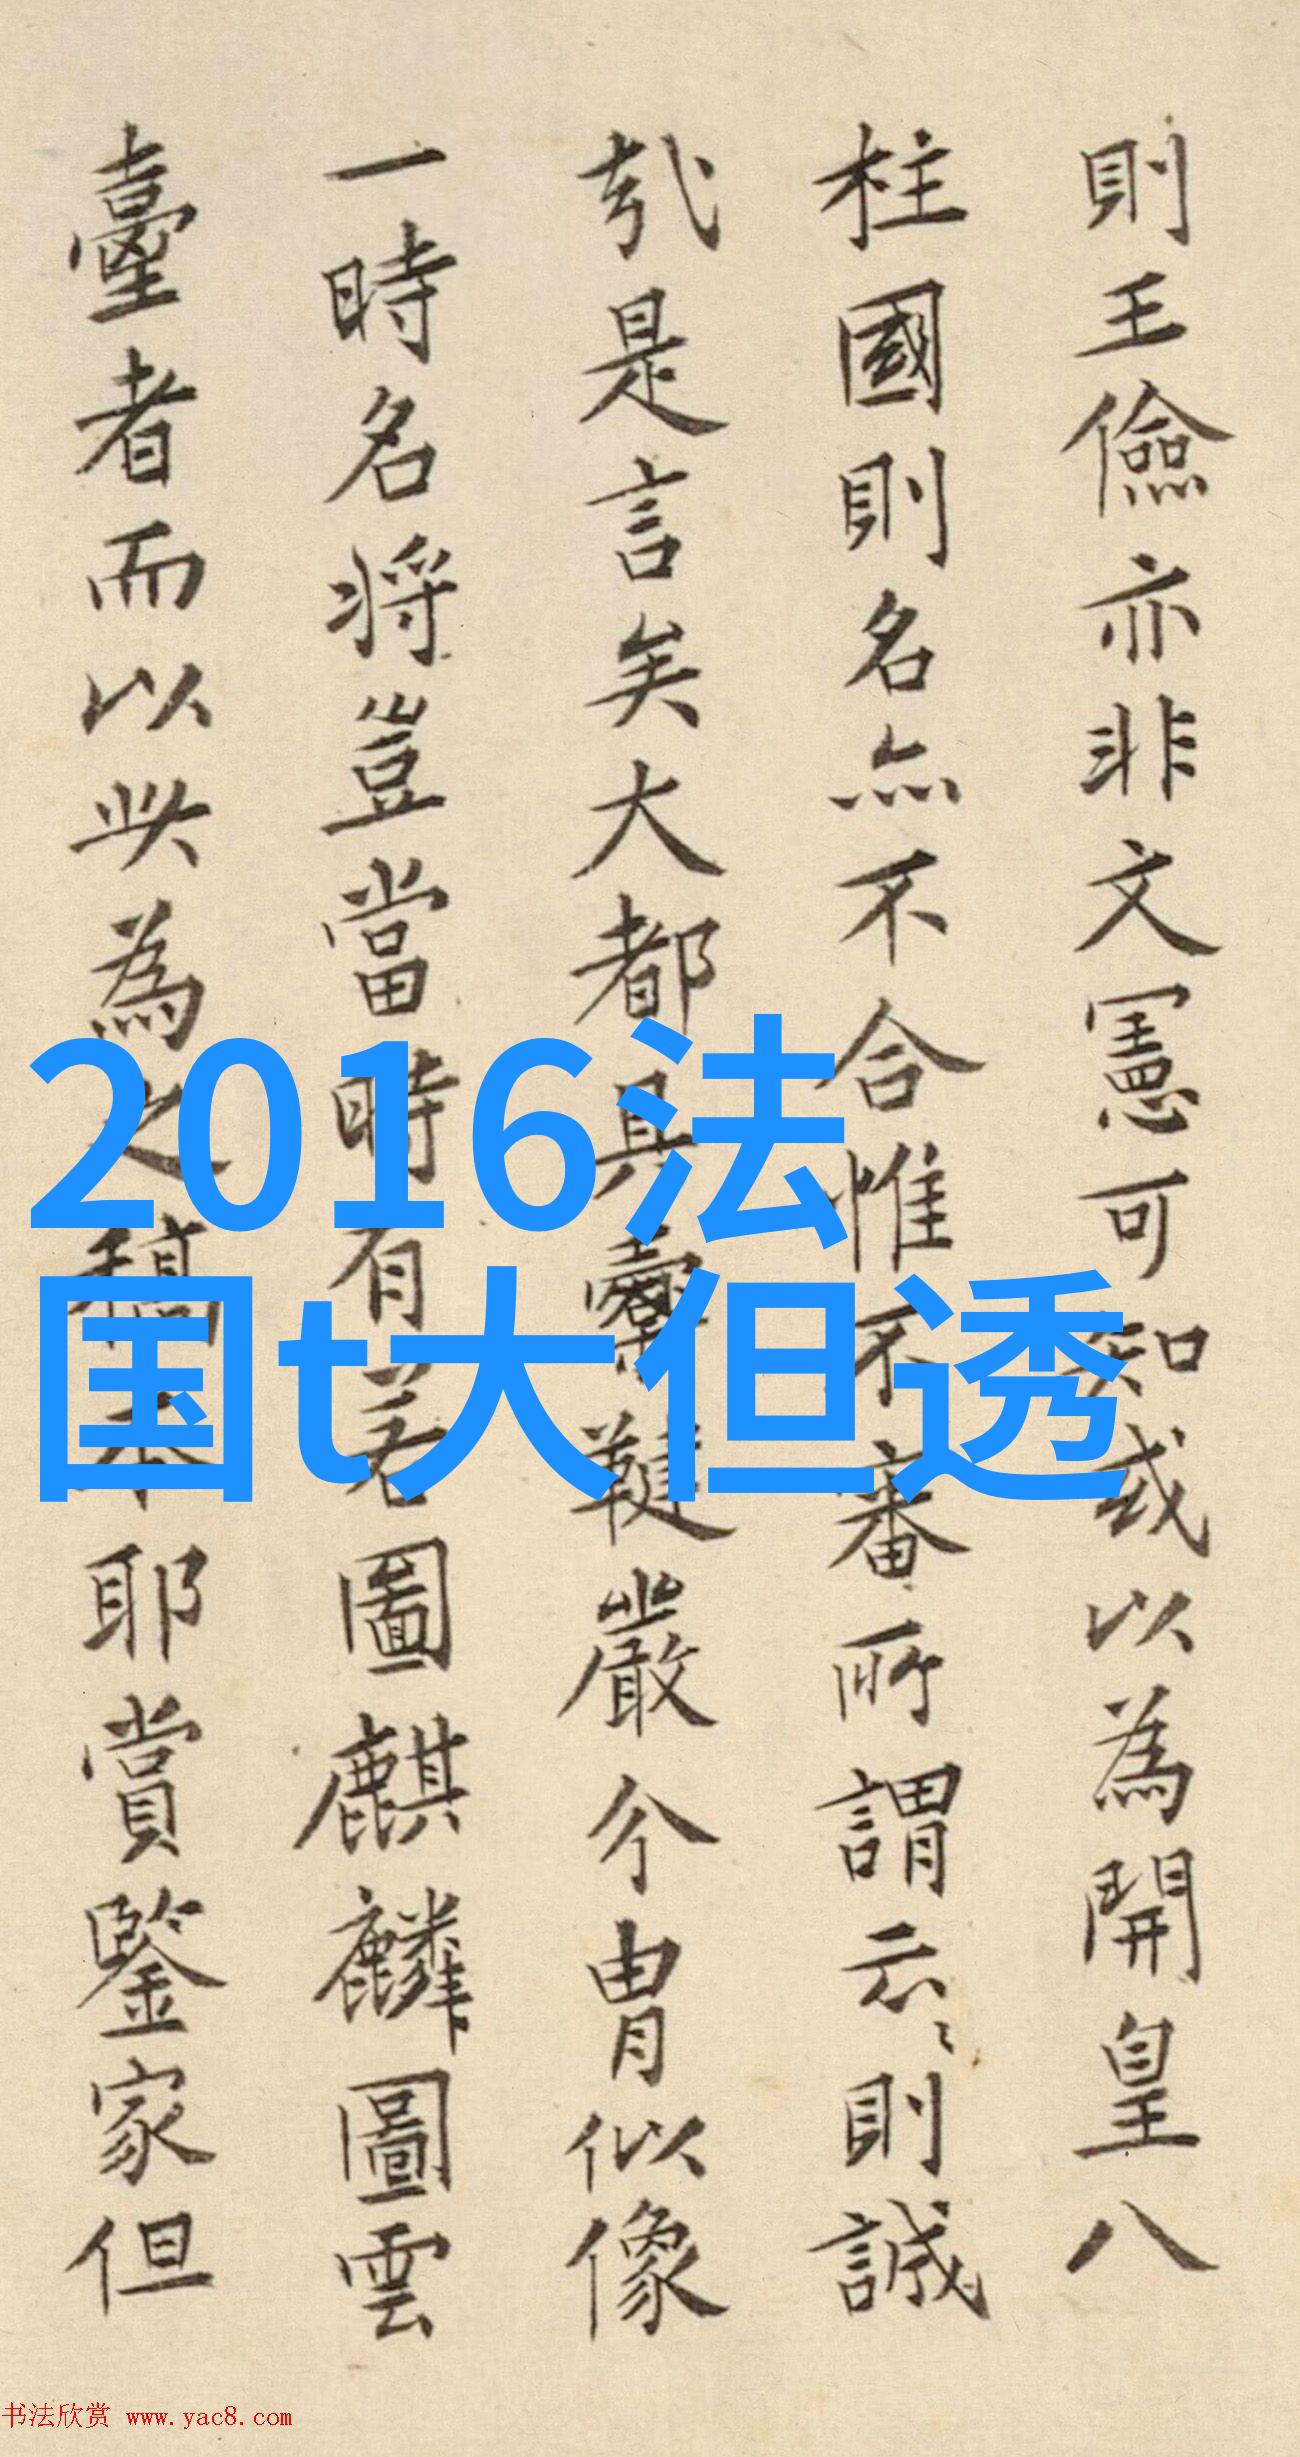 則王儉亦非文憲可知或以為開皇八
柱國則名亦不合惟不審所謂云〻則誠
哉是言矣大都具櫜鞬嚴介冑似像
一時名將豈當時有若圖麒麟圖雲
臺者而以此為之稿本耶賞鑒家但
2016法
国t大但透
书法欣赏 www.yac8.com